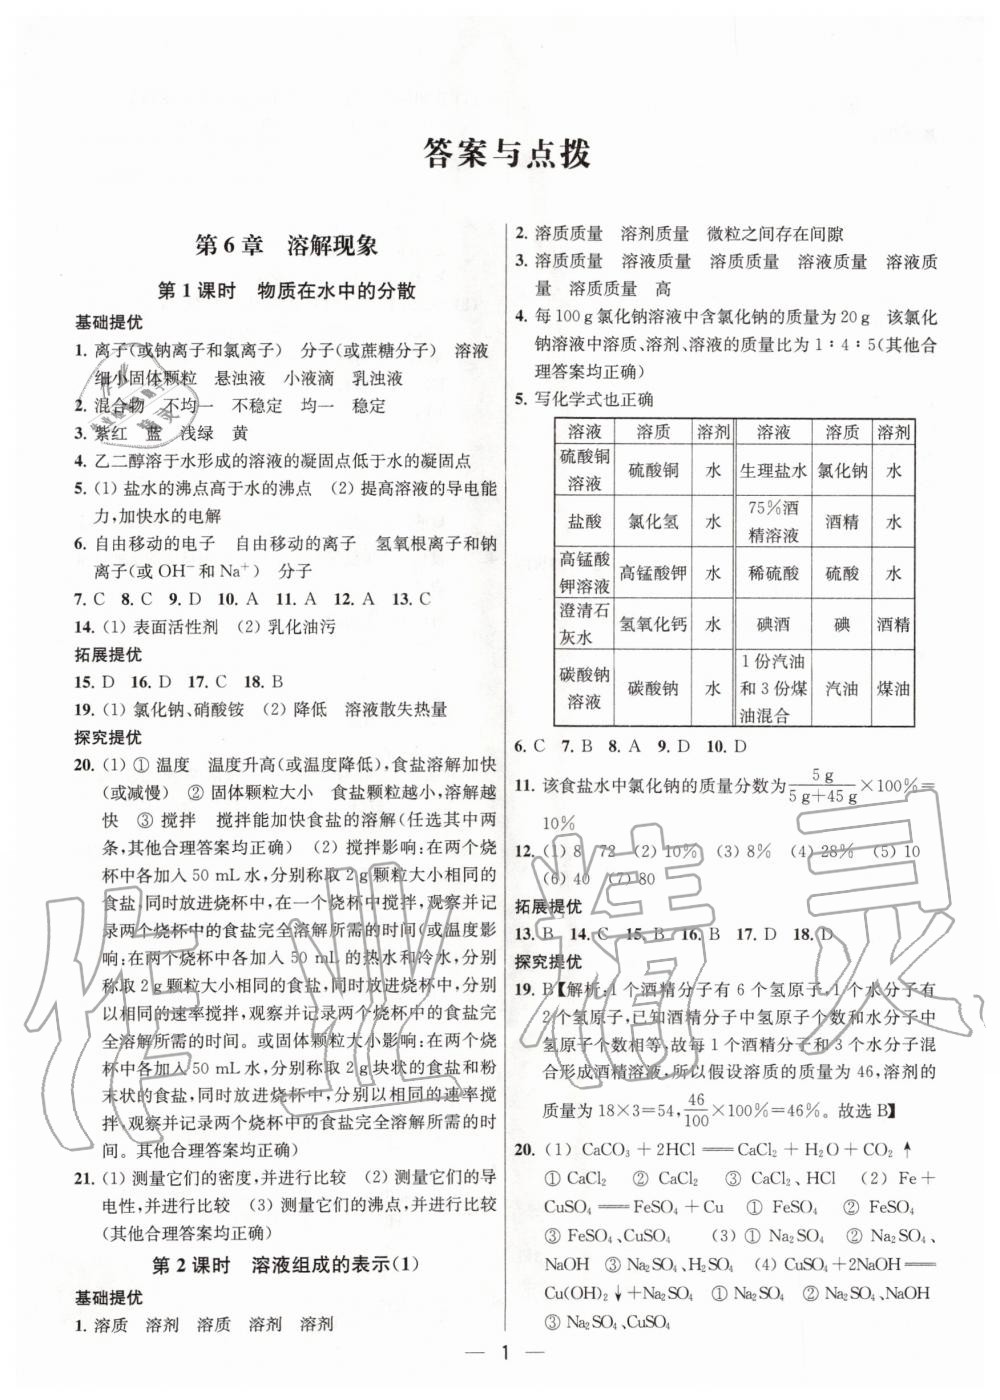 答案与点拨
第6章 溶解现象
第1课时 物质在水中的分散
基础提优
1. 离子(或钠离子和氯离子) 分子(或蔗糖分子) 溶液
细小固体颗粒 悬浊液 小液滴 乳浊液
2. 混合物 不均一 不稳定 均一 稳定
3. 紫红 蓝 浅绿 黄
4. 乙二醇溶于水形成的溶液的凝固点低于水的凝固点
5. (1) 盐水的沸点高于水的沸点 (2) 提高溶液的导电能
力,加快水的电解
6. 自由移动的电子 自由移动的离子 氢氧根离子和钠
离子(或 OH⁻和 Na⁺) 分子
7. C 8. C 9. D 10. A 11. A 12. A 13. C
14. (1) 表面活性剂 (2) 乳化油污
拓展提优
15. D 16. D 17. C 18. B
19. (1) 氯化钠、硝酸铵 (2) 降低 溶液散失热量
探究提优
20. (1) ① 温度 温度升高(或温度降低),食盐溶解加快
(或减慢) ② 固体颗粒大小 食盐颗粒越小,溶解越
快 ③ 搅拌 搅拌能加快食盐的溶解(任选其中两
条,其他合理答案均正确) (2) 搅拌影响:在两个烧
杯中各加入 50 mL水,分别称取2g颗粒大小相同的
食盐,同时放进烧杯中,在一个烧杯中搅拌,观察并记
录两个烧杯中的食盐完全溶解所需的时间(或温度影
响:在两个烧杯中各加入 50 mL的热水和冷水,分别
称取2g颗粒大小相同的食盐,同时放进烧杯中,分别
以相同的速率搅拌,观察并记录两个烧杯中的食盐完
全溶解所需的时间。或固体颗粒大小影响:在两个烧
杯中各加入 50 mL水,分别称取2g块状的食盐和粉
末状的食盐,同时放进烧杯中,分别以相同的速率搅
拌,观察并记录两个烧杯中的食盐完全溶解所需的时
间。其他合理答案均正确)
21. (1) 测量它们的密度,并进行比较 (2) 测量它们的导
电性,并进行比较 (3) 测量它们的沸点,并进行比较
(其他合理答案均正确)
第2课时 溶液组成的表示(1)
基础提优
1. 溶质 溶剂 溶质 溶剂 溶剂
2. 溶质质量 溶剂质量 微粒之间存在间隙
3. 溶质质量 溶液质量 溶质质量 溶液质量 溶液质
量 溶质质量 高
4. 每100g氯化钠溶液中含氯化钠的质量为20g 该氯化
钠溶液中溶质、溶剂、溶液的质量比为1∶4∶5(其他合
理答案均正确)
5. 写化学式也正确
溶液 溶质 溶剂 溶液 溶质 溶剂
硫酸铜溶液 硫酸铜 水 生理盐水 氯化钠 水
盐酸 氯化氢 水 75%酒精溶液 酒精 水
高锰酸钾溶液 高锰酸钾 水 稀硫酸 硫酸 水
澄清石灰水 氢氧化钙 水 碘酒 碘 酒精
碳酸钠溶液 碳酸钠 水 1份汽油和3份煤油混合 汽油 煤油
6. C 7. B 8. A 9. D 10. D
11. 该食盐水中氯化钠的质量分数为 5 g/(5 g+45 g)×100%=
10%
12. (1) 8 72 (2) 10% (3) 8% (4) 28% (5) 10
(6) 40 (7) 80
拓展提优
13. B 14. C 15. B 16. B 17. D 18. D
探究提优
19. B【解析:1个酒精分子有6个氢原子,1个水分子有
2个氢原子,已知酒精分子中氢原子个数和水分子中
氢原子个数相等,故每1个酒精分子和3个水分子混
合形成酒精溶液,所以假设溶质的质量为46,溶剂的
质量为18×3=54,46/100×100%=46%。故选B】
20. (1) CaCO₃+2HCl══CaCl₂+H₂O+CO₂↑
① CaCl₂ ② CaCl₂ ③ CaCl₂、HCl (2) Fe+
CuSO₄══FeSO₄+Cu ① FeSO₄ ② FeSO₄
③ FeSO₄、CuSO₄ (3) ① Na₂SO₄ ② Na₂SO₄、
NaOH ③ Na₂SO₄、H₂SO₄ (4) CuSO₄+2NaOH══
Cu(OH)₂↓+Na₂SO₄ ① Na₂SO₄ ② Na₂SO₄、NaOH
③ Na₂SO₄、CuSO₄
1
作业精灵